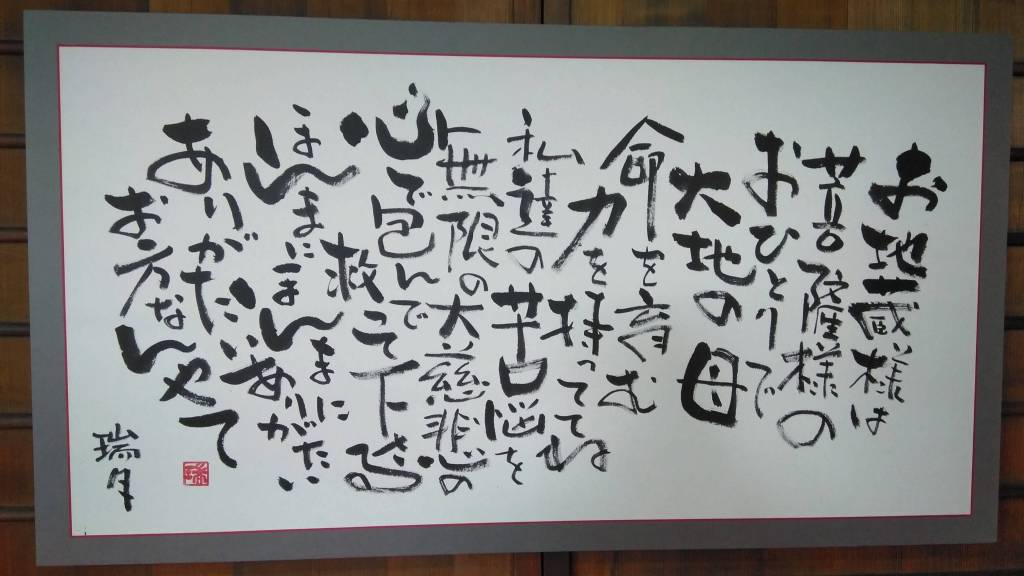 お地蔵様は
菩薩様の
おひとりで
大地の母
命を育む
力を持っててね
私達の苦悩を
無限の大慈悲の
心で包んで
救って下さる
ほんまにほんまに
ありがたいありがたい
お方なんやて
瑞月